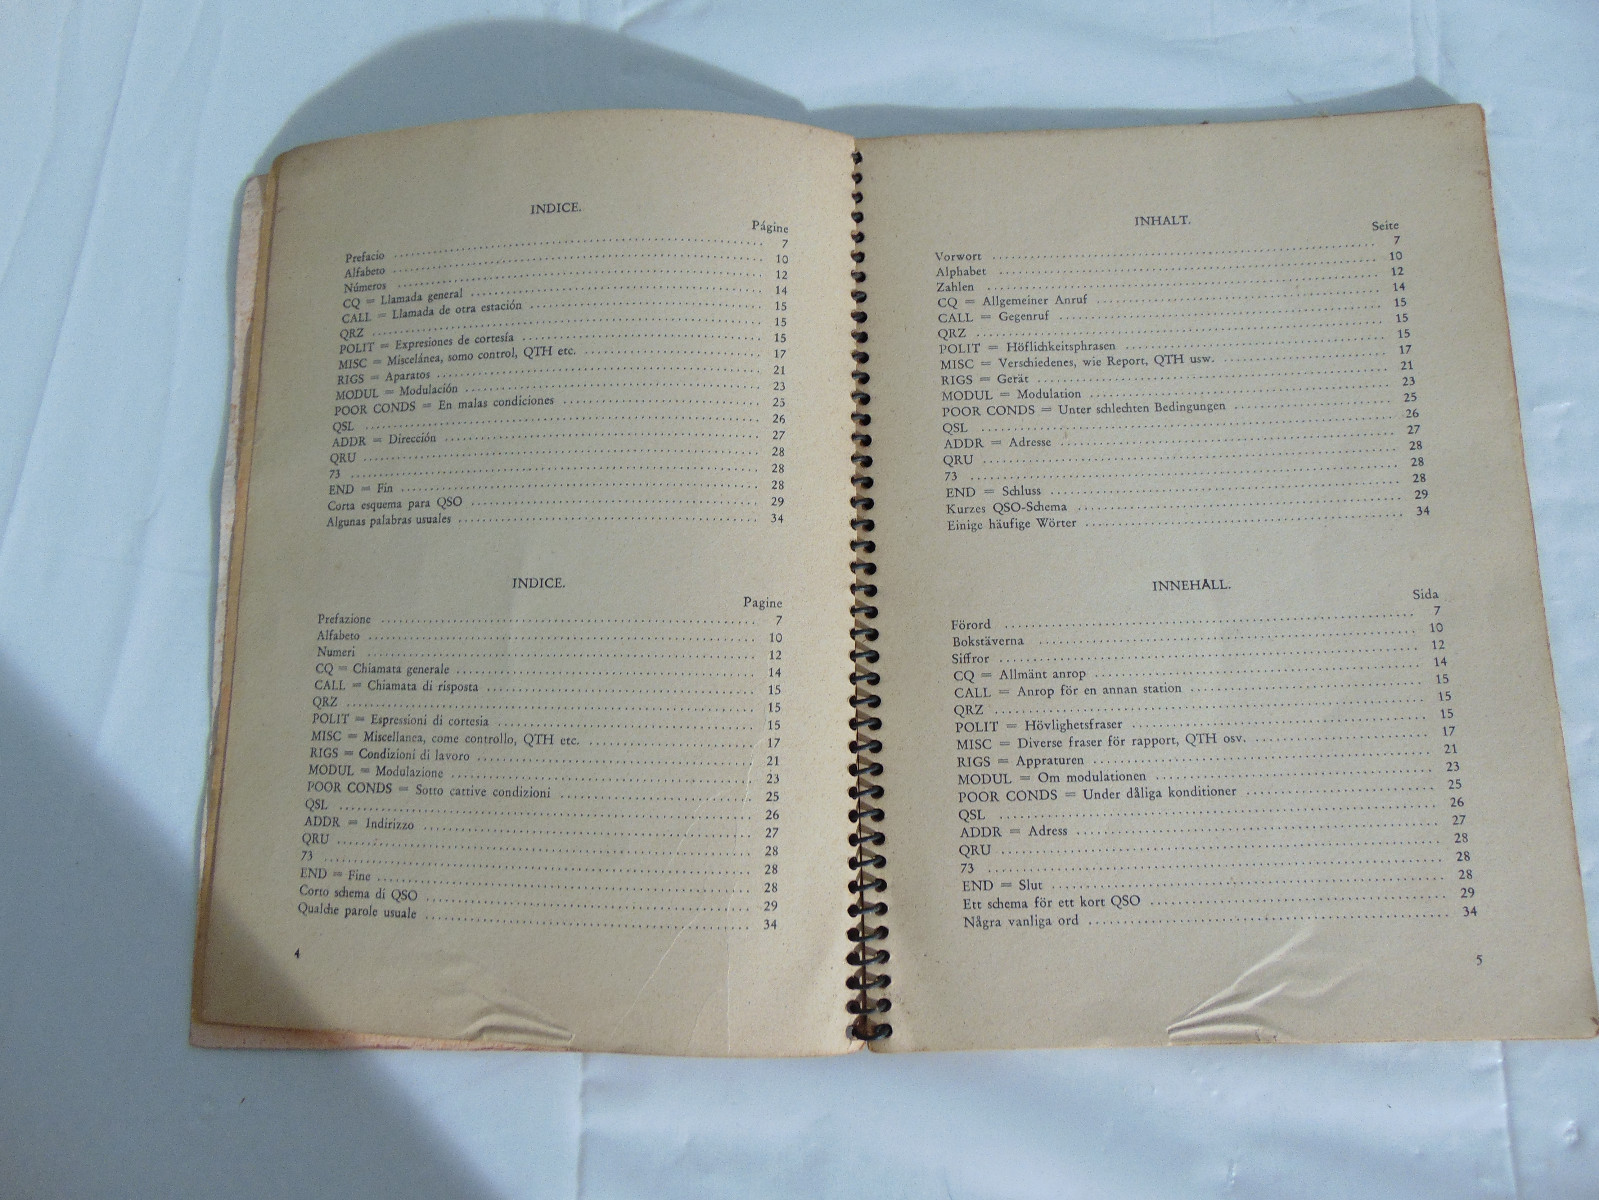 INDICE.
Págine
Prefacio 7
Alfabeto 10
Números 12
CQ = Llamada general 14
CALL = Llamada de otra estación 15
QRZ 15
POLIT = Expresiones de cortesía 15
MISC = Miscelánea, somo control, QTH etc. 17
RIGS = Aparatos 21
MODUL = Modulación 23
POOR CONDS = En malas condiciones 25
QSL 26
ADDR = Dirección 27
QRU 28
73 28
END = Fin 28
Corta esquema para QSO 29
Algunas palabras usuales 34
INDICE.
Pagine
Prefazione 7
Alfabeto 10
Numeri 12
CQ = Chiamata generale 14
CALL = Chiamata di risposta 15
QRZ 15
POLIT = Espressioni di cortesia 15
MISC = Miscellanea, come controllo, QTH etc. 17
RIGS = Condizioni di lavoro 21
MODUL = Modulazione 23
POOR CONDS = Sotto cattive condizioni 25
QSL 26
ADDR = Indirizzo 27
QRU 28
73 28
END = Fine 28
Corto schema di QSO 29
Qualche parole usuale 34
4
INHALT.
Seite
Vorwort 7
Alphabet 10
Zahlen 12
CQ = Allgemeiner Anruf 14
CALL = Gegenruf 15
QRZ 15
POLIT = Höflichkeitsphrasen 15
MISC = Verschiedenes, wie Report, QTH usw. 17
RIGS = Gerät 21
MODUL = Modulation 23
POOR CONDS = Unter schlechten Bedingungen 25
QSL 26
ADDR = Adresse 27
QRU 28
73 28
END = Schluss 28
Kurzes QSO-Schema 29
Einige häufige Wörter 34
INNEHÅLL.
Sida
Förord 7
Bokstäverna 10
Siffror 12
CQ = Allmänt anrop 14
CALL = Anrop för en annan station 15
QRZ 15
POLIT = Hövlighetsfraser 15
MISC = Diverse fraser för rapport, QTH osv. 17
RIGS = Appraturen 21
MODUL = Om modulationen 23
POOR CONDS = Under dåliga konditioner 25
QSL 26
ADDR = Adress 27
QRU 28
73 28
END = Slut 28
Ett schema för ett kort QSO 29
Några vanliga ord 34
5